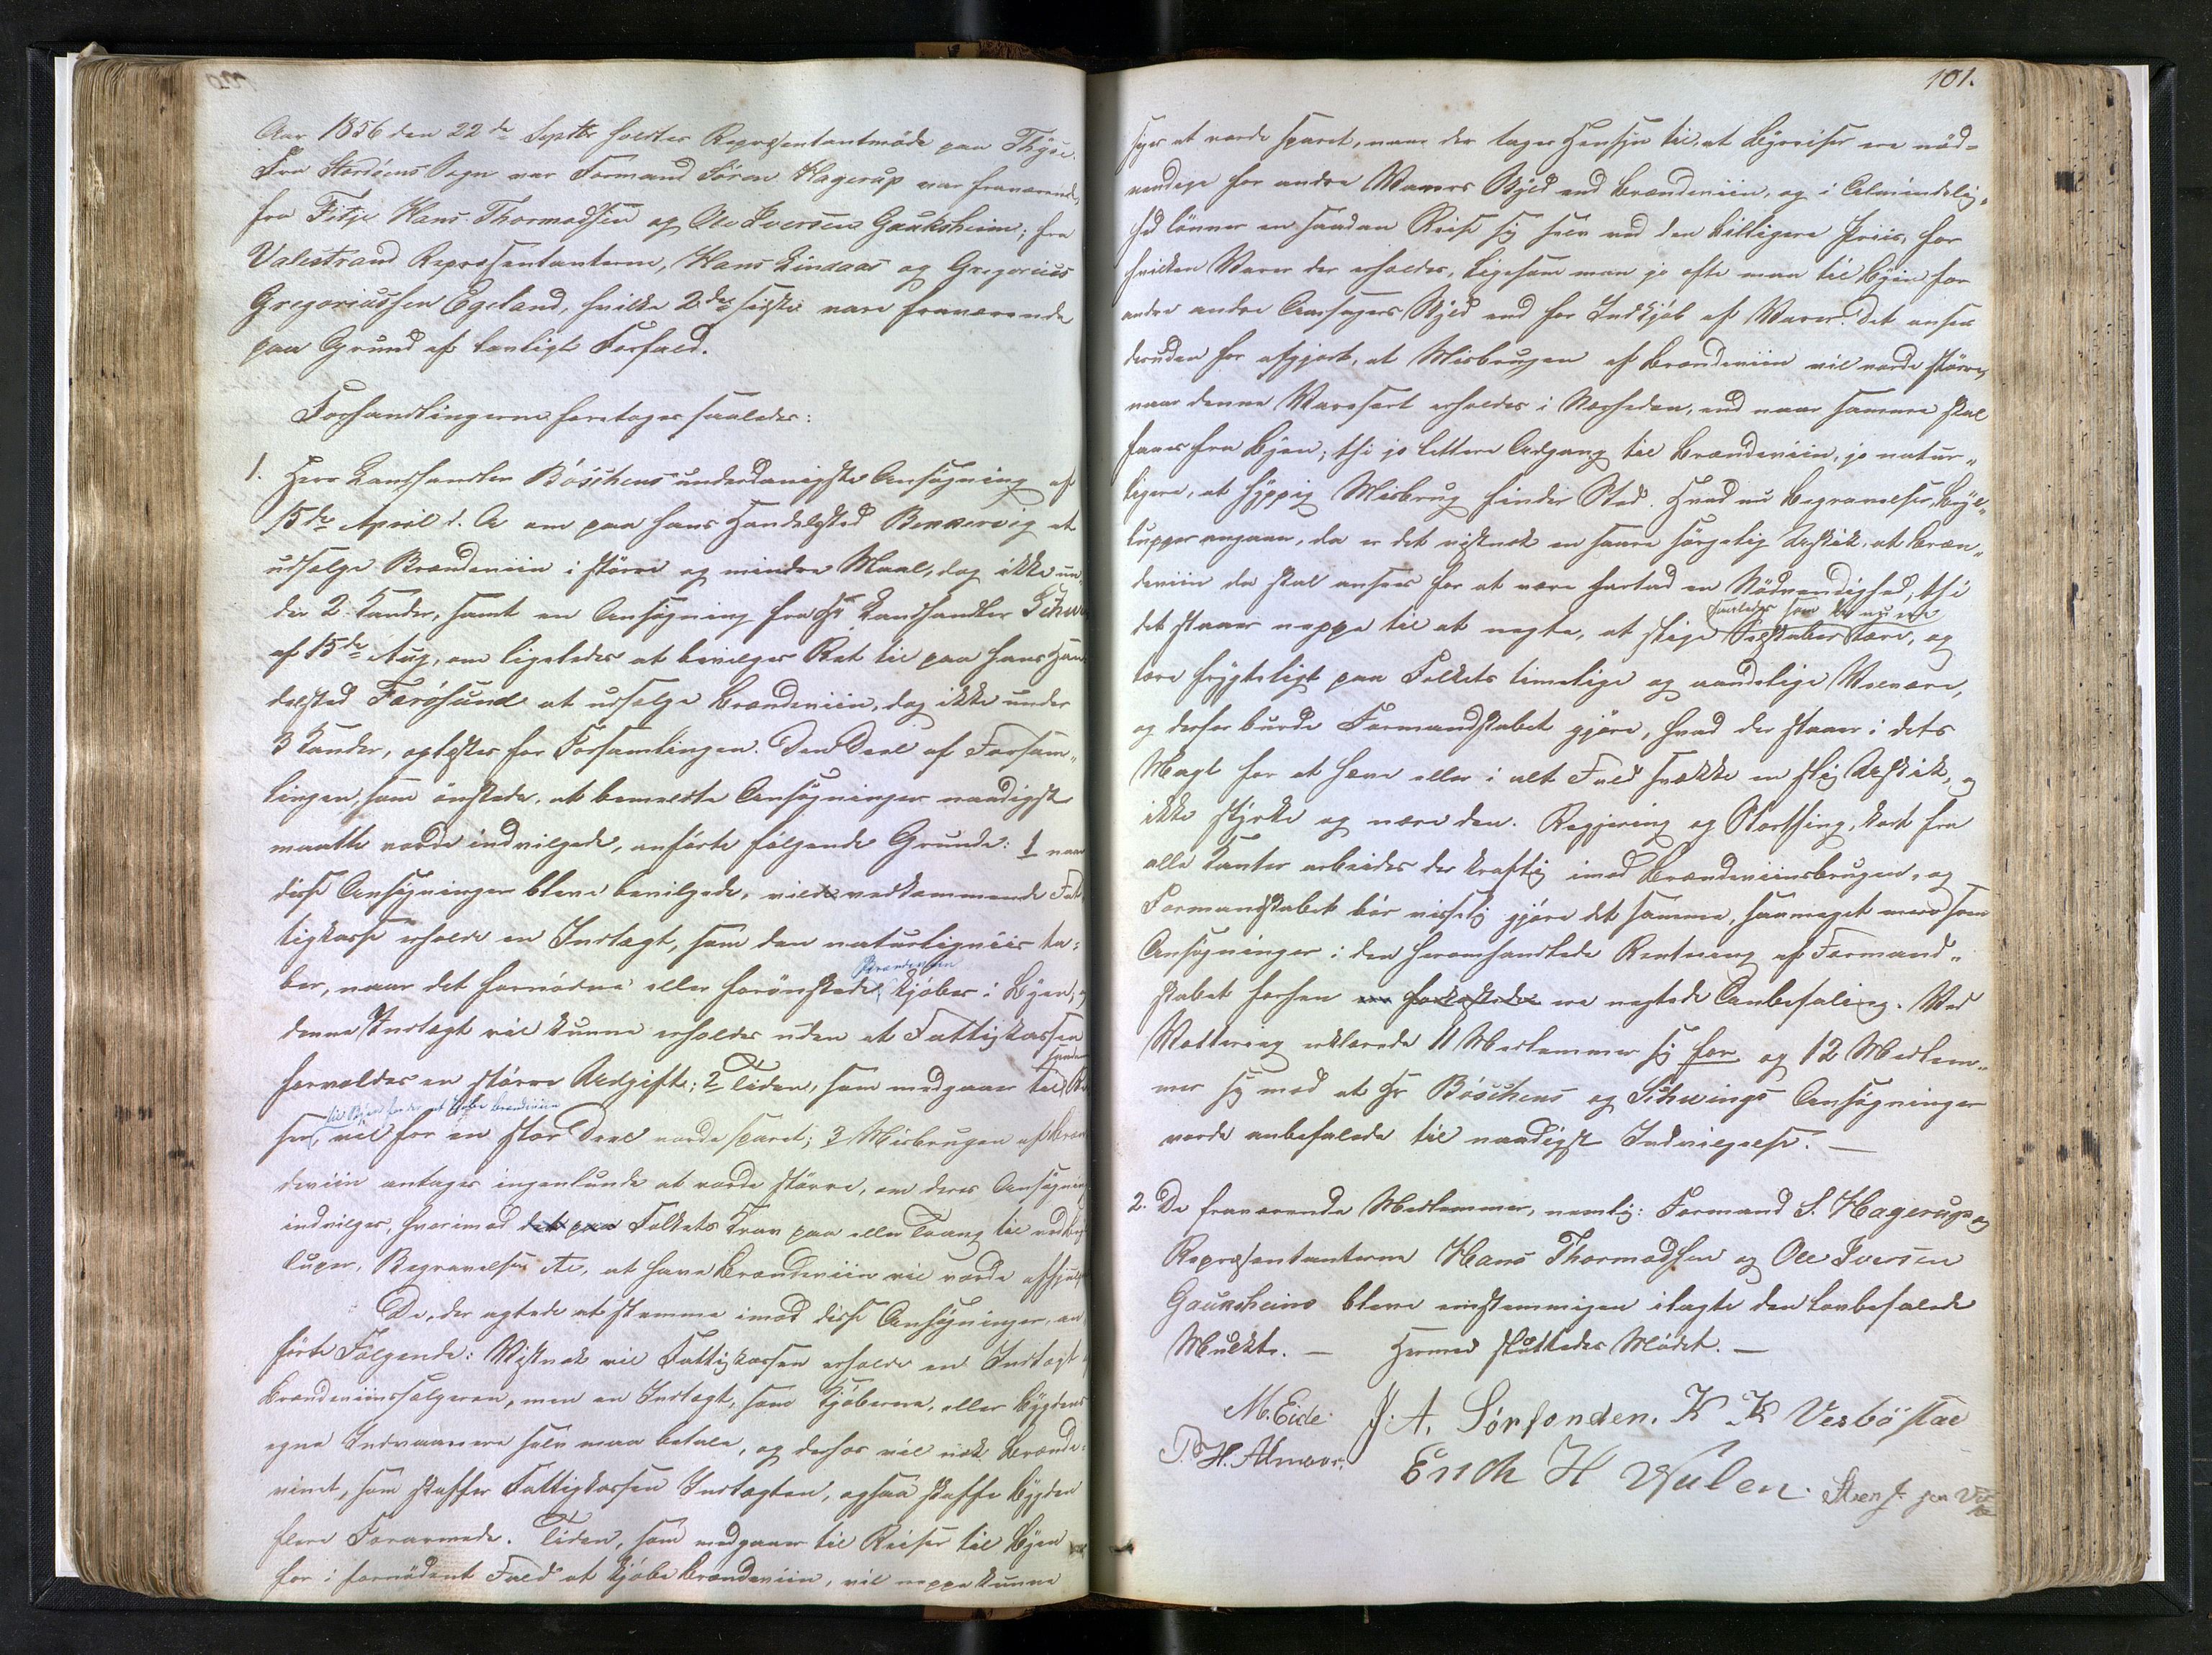 Aar 1856 den 22de Septbr holdtes Repræsentantmøde paa Thyse.
Fra Stordöens Sogn var Formand Sören Hagerup var fraværende,
fra Fitje Hans Thormodsen og Ole Iversen Gauksheim; fra
Valestrand Repræsentanterne, Hans Lindaas og Gregorius
Gregoriussen Egeland, hvilke 2de sidste vare fraværende
paa Grund af lovligt Forfald.
Forhandlingerne foretoges saaledes:
1. Herr Landhandler Böschens underdanigste Ansögning af
15de April d. A om paa hans Handelssted Bekkervig at
udsælge Brændeviin i större og mindre Maal, dog ikke un-
der 2 Kander, samt en Ansögning fra Hr Landhandler Schw
af 15de Aug, om ligeledes at bevilges Ret til paa hans Han
delssted Færösund at udsælge Brændeviin, dog ikke under
3 Kander, oplæstes for Forsamlingen. Den Deel af Forsam-
lingen, som önskede, at bemeldte Ansögninger naadigst
maatte vorde indvilgede, anförte fölgende Grunde: 1 naar
disse Ansögninger bleve bevilgede, vilde vedkommende Fat
tigkasse erholde en Indtægt, som den naturligviis ta-
Brændeviin
ber, naar det fornödne eller forönskede kjöbes i Byen, og
denne Indtægt vil kunne erholdes uden at Fattigkassen
forvoldes en större Udgift; 2 Tiden, som medgaaer til Rei
til Byen for der at kjöbe Brændeviin
ser, vil for en stor Deel vorde sparet; 3 Misbrugen af Bræn
deviin antages ingenlunde at vorde större, om deres Ansögning
indvilges, hvorimod det paa Folkets Trav paa eller Trang til ved Bryl
luper, Begravelser etc, at have Brændeviin vil vorde afhjulpet
De, der agtede at stemme imod disse Ansögninger, an
förte Fölgende: Vistnok vil Fattigkassen erholde en Indtægt af
Brændeviinssælgeren, men en Indtægt, som Kjöberne, eller Bygdens
egne Indvaanere selv maa betale, og derhos vil nok Brænde-
vinet, som skaffer Fattigkassen Indtægten, ogsaa skaffe Bygden
flere Forarmede. Tiden, som medgaaer til Reiser til Byen
for i fornödent Fald at kjöbe Brændeviin, vil neppe kunne
101.
siges at vorde sparet, naar der tages Hensyn til, at Byreiser ere nöd-
vendige for andre Varers Skyld end Brændeviin, og i Almindelig-
hed lönner en saadan Reise sig selv ved den billigere Priis, for
hvilken Varer der erholdes, ligesom man jo ofte maa til Byen for
andre andre Aarsagers Skyld end for Indkjöb af Varer. Det ansees
desuden for afgjort, at Misbrugen af Brændeviin vil vorde större,
naar denne Varesort erholdes i Nærheden, end naar samme skal
faaes fra Byen; thi jo lettere Adgang til Brændeviin, jo natur-
ligere, at hyppig Misbrug finder Sted. Hvad nu Begravelser, Bryl-
lupper angaaer, da er det vistnok en saare sörgelig Uskik, at Bræn-
deviin da skal ansees for at være hartad en Nödvendighed; thi
saaledes som de nu ere
det staaer neppe til at negte, at slige Selskaber tære, og
tære frygteligt paa Folkets timelige og aandelige Velvære,
og derfor burde Formandskabet gjöre, hvad der staaer i dets
Magt for at hæve eller i alt Fald svække en slig Uskik, og
ikke styrke og nære den. Regjering og Storthing, kort fra
alle Kanter arbeides der kraftig imod Brændeviinsbrugen, og
Formandskabet bör visselig gjöre det samme, saameget mere som
Ansögninger i den heromhandlede Retning af Formand-
skabet forhen ere forkastede ere negtede Anbefaling. Ved
Vottering erklærede 11 Medlemmer sig for og 12 Medlem-
mer sig mod at Hr Böschens og Schwings Ansögninger
vorde anbefalede til naadigst Indvilgelse. —
2. De fraværende Medlemmer, nemlig: Formand S. Hagerup og
Repræsentanterne Hans Thormodsen og Ole Iversen
Gauksheim bleve eenstemmigen ilagte den lovbefalede
Mulkt. — Hermed sluttedes Mödet. —
M. Eide. J. A. Sörfonden. K K Vesböstae
T. H. Almaas. Erich H Wulen.